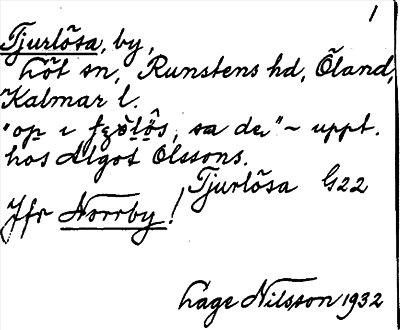 1
Tjurlösa, by,
Löt sn, Runstens hd, Öland,
Kalmar l.
"op ı sa de" ~ uppt.
hos Algot Olssons.
Tjurlösa G22
Jfr Norrby!
Lage Nilsson 1932